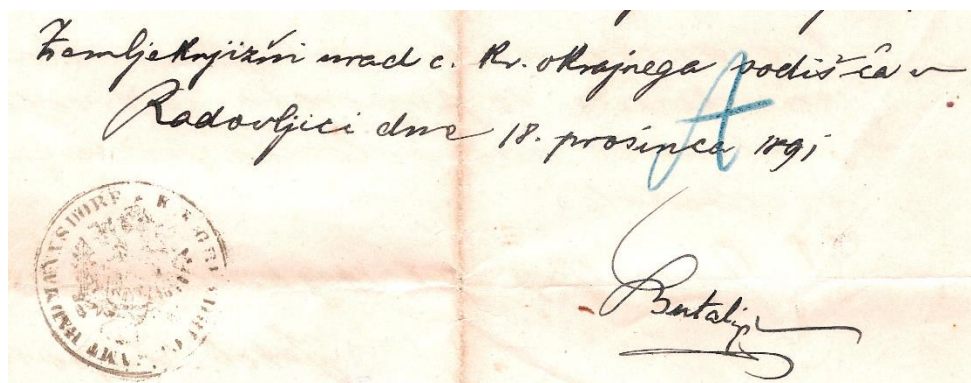 Zemljeknjižni urad c. kr. okrajnega sodišča v
Radovljici dne 18. prosinca 1891
A